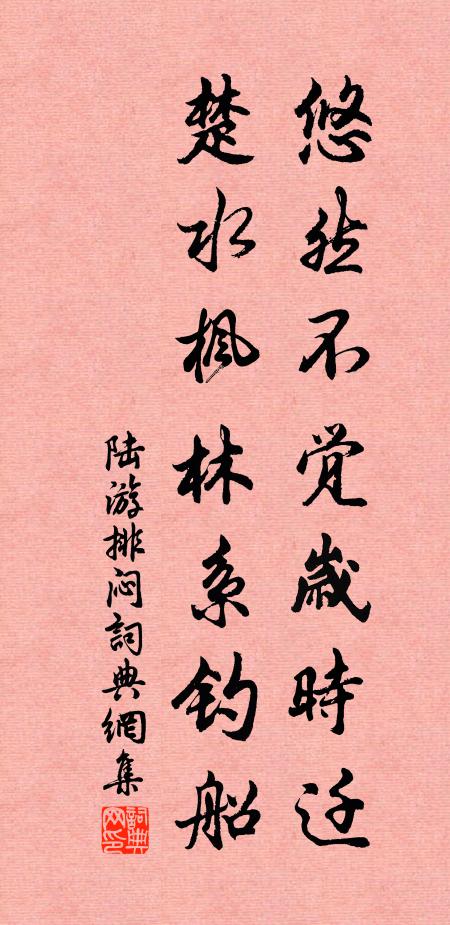 悠然不觉岁時迁
楚水枫林系钓船
陆游排闷詞典網集
詞典网印